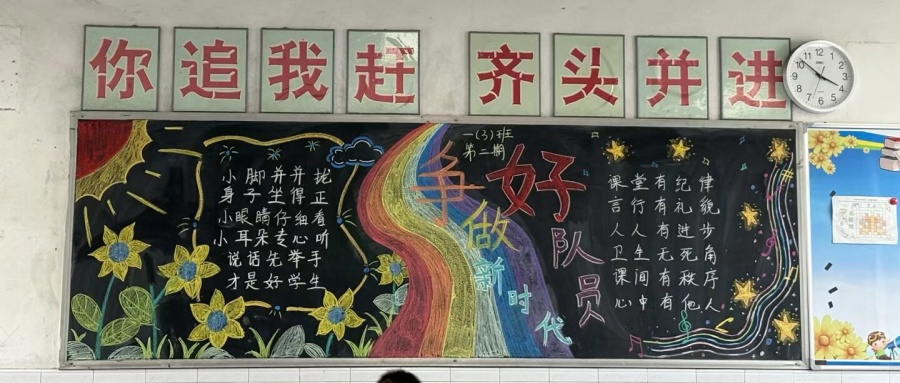 你追我赶 齐头并进
一(3)班
第二期
小脚并并拢
身子坐得正
小眼睛仔细看
小耳朵专心听
说话先举手
才是好学生
争做新时代
好队员
课堂有纪律
言行有礼貌
人人有进步
卫生无死角
课间有秩序
心中有他人
12
1
2
3
4
5
6
7
8
9
10
11